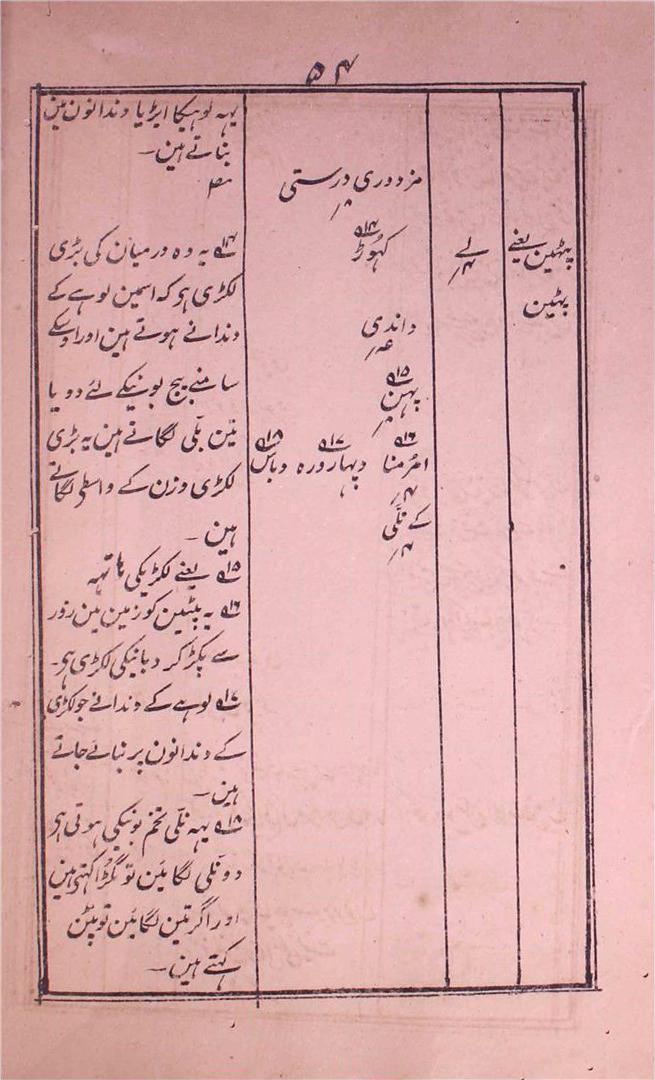 ۵۴
پہٹین یعنے
پہٹین
مزدوری درستی
۵۱۴
کہوڑ
داندی
۵۱۵
پہن
۵۱۶ ۵۱۷ ۵۱۸
دہارورہ دباس
کے نلی
یہہ لوہیکا ایڑیا دندانون مین
بناتے ہین۔
۵۱۴ یہ وہ درمیان کی بڑی
لکڑی ہی کہ اسمین لوہے کے
دندانے ہوتے ہین اور اوسکے
سامنے بیج بونیکے لئے دو یا
تین نلی لگاتے ہین یہ بڑی
لکڑی وزن کے واسطی لگاتے
ہین۔
۵۱۵ یعنے لکڑیکی ہاتہہ
۵۱۶ یہ پہٹین کو زمین مین زور
سے پکڑ کر دبانیکی لکڑی ہی۔
۵۱۷ لوہے کے دندانے جو لکڑی
کے دندانون پر بنائے جاتے
ہین۔
۵۱۸ یہہ نلی تخم بونیکی ہوتی ہی
دو نلی لگائین تو کہتے ہین
اور اگر تین لگائین تو پہٹن
کہتے ہین۔